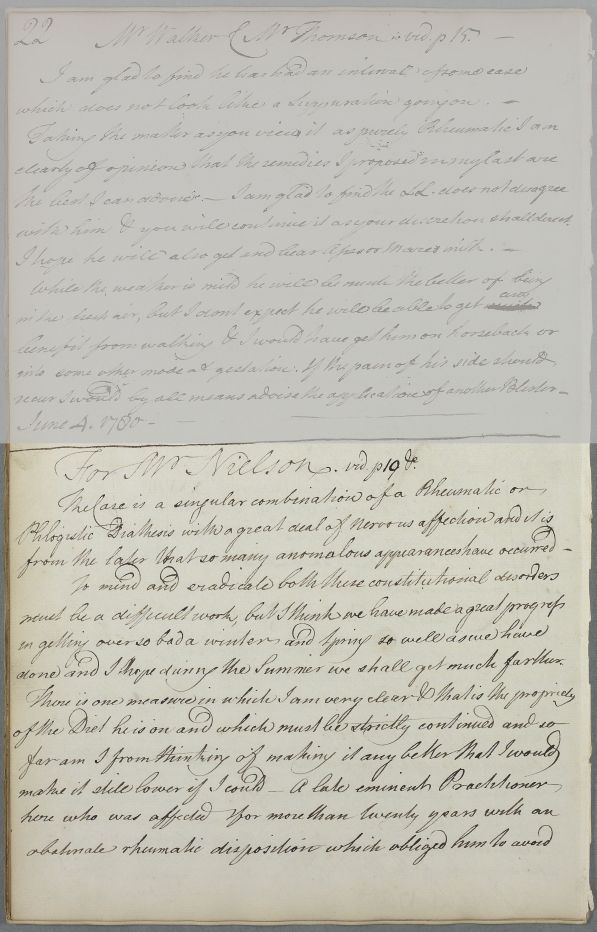 22 Mr Walker & Mr Thomson vid. p 15. —
I am glad to find he has had an interval of some ease
which does not look like a suppuration going on. —
Taking the matter as you view it as purely Rheumatic I am
clearly of opinion that the remedies I proposed in my last are
the best I can advise. — I am glad to find the LL. does not disagree
with him & you will continue it as your discretion shall direct.
I hope he will also get and bear Asses or Mares milk. —
While the weather is mild he will be much the better of being
in the fresh air, but I dont expect he will be able to get any
benefit from walking & I would have get him on horseback or
into some other mode of gestation. If the pain of his side should
recur I would by all means advise the application of another Blister —
June 4. 1780 —
For Mr Nielson. vid. p 19 &c.
The Case is a singular combination of a Rheumatic or
Phlogistic Diathesis with a great deal of nervous affection and it is
from the later that so many anomalous appearances have occurred —
To mend and eradicate both these constitutional disorders
must be a difficult work, but I think we have made a great progress
in getting over so bad a winter and spring so well as we have
done and I hope during the Summer we shall get much farther.
There is one measure in which I am very clear & that is the propriety
of the Diet he is on and which must be strictly continued and so
far am I from thinking of making it any better that I would
make it still lower if I could — A late eminent Practitioner
here who was affected for more than twenty years with an
obstinate rheumatic disposition which obliged him to avoid